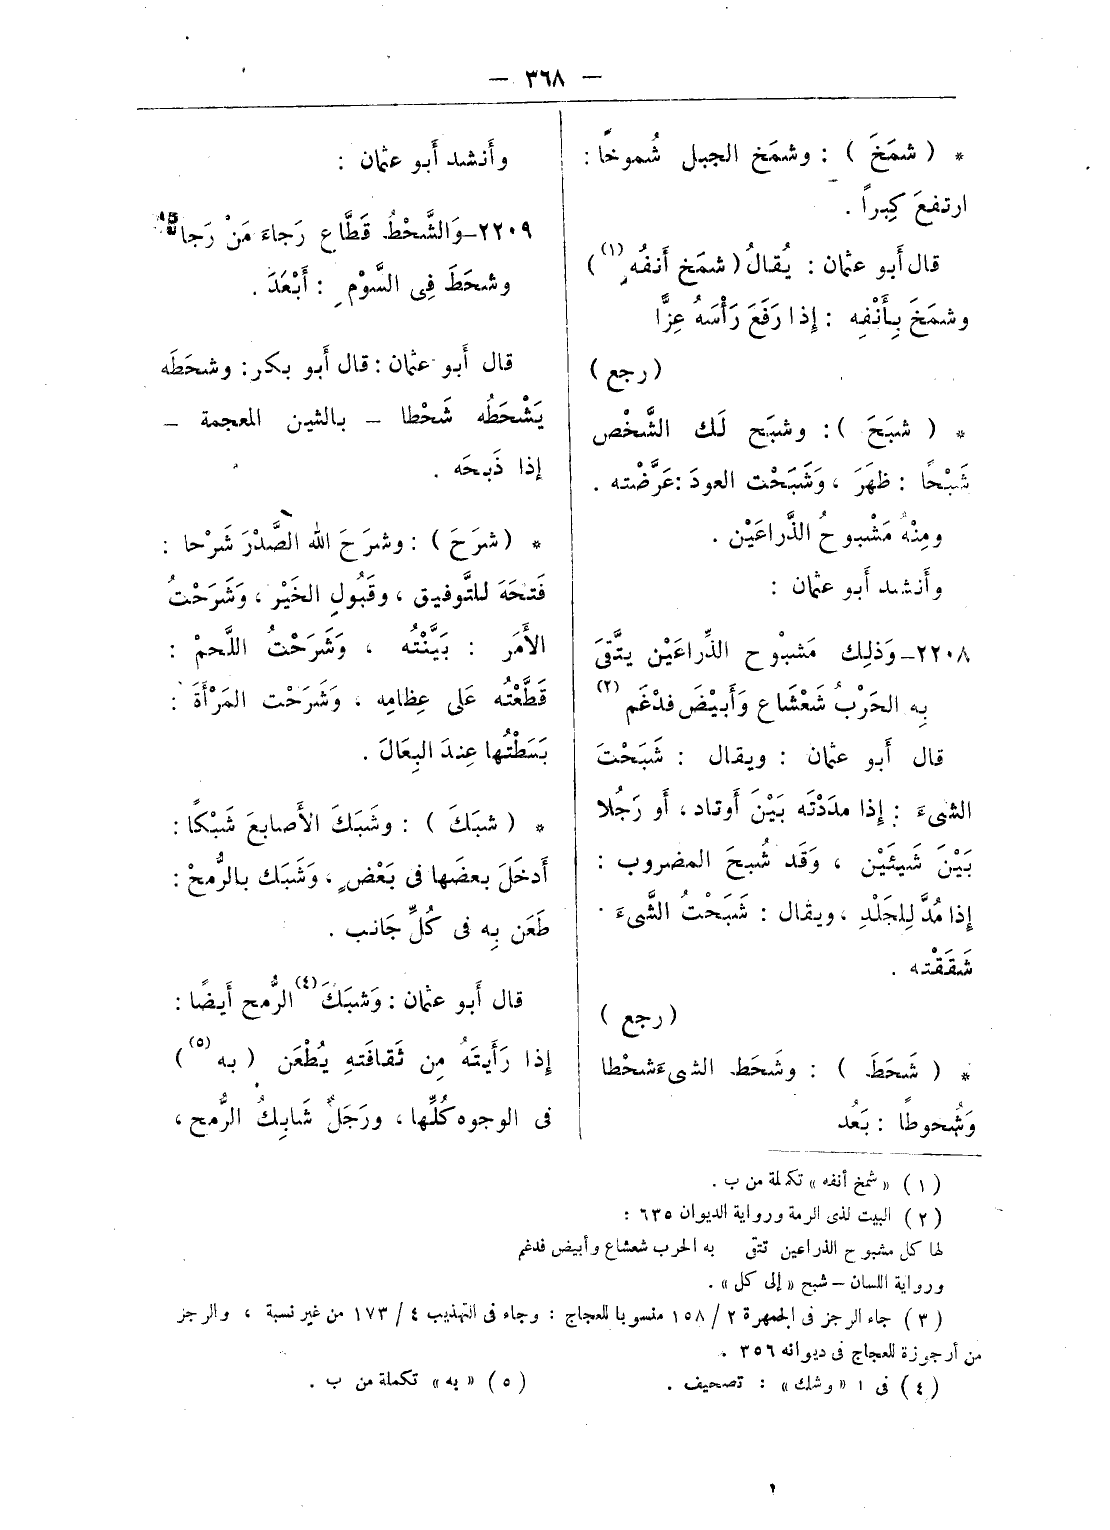 — ٣٦٨ —
* ( شمَخَ ) : وشمَخ الجبل شُموخًا :
ارتفعَ كِبراً .
قال أَبو عثمان : يُقالُ ( شمَخ أَنفُه (١) )
وشمَخَ بِأَنْفِه : إذا رَفَعَ رَأْسَهُ عِزًّا
( رجع )
* ( شبَحَ ) : وشبَح لَك الشَّخْص
شَبْحًا : ظهَرَ ، وَشَبَحْت العودَ : عَرَّضْته .
ومِنْهُ مَشْبوحُ الذِّرَاعَيْن .
وأَنشد أَبو عثمان :
٢٢٠٨ــ وَذلِك مَشْبُوحِ الذِّرَاعَيْن يتَّقىَ
بِه الحَرْبُ شَعْشَاعٍ وَأَبيْضَ فدْغَم (٢)
قال أَبو عثمان : ويقال : شَبَحْتَ
الشىءَ : إذا مدَدْتَه بَيْنَ أَوتاد ، أَو رَجُلا
بَيْنَ شَيئَيْن ، وَقَد شُبحَ المضروب :
إذا مُدَّ لِلجَلْدِ ، ويقال : شَبَحْتُ الشَّىءَ .
شَقَقْته .
( رجع )
* ( شَحَطَ ) : وشَحَط الشىءَ شحْطا
وَشُحوطًا : بَعُد
وأَنشد أَبو عثمان :
٢٢٠٩ــ وَالشَّحْطُ قَطَّاعٍ رَجاءَ مَنْ رَجا
وشحَطَ فِى السَّوْمِ : أَبْعَدَ .
قال أَبو عثمان : قال أَبو بكر : وشحَطَه
يَشْحَطُه شَحْطا ــ بالشين المعجمة ــ
إذا ذَبحَه .
* ( شرَحَ ) : وشرَحَ الله الصَّدْرَ شَرْحا :
فَتحَهَ للتَّوفيق ، وقَبُولِ الخَيْر ، وَشَرَحْتُ
الأَمَر : بَيَّنْتُه ، وَشَرَحْتُ اللَّحمْ :
قَطَّعْتُه عَلى عِظامِه ، وَشَرَحْت المَرْأَةَ :
بَسَطْتُها عِندَ البِعَالَ .
* ( شبَكَ ) : وشَبَكَ الأَصابعَ شَبْكًا :
أَدخَلَ بعضَها فى بَعْضٍ ، وَشَبَك بالرُّمحْ :
طَعَن بِه فى كُلِّ جَانب .
قال أَبو عثمان : وَشبَكَ (٤) الرُّمح أَيضًا :
إذا رَأَيتَهُ مِن ثَقافَتهِ يُطْعَن ( به (٥) )
فى الوجوه كُلِّها ، ورَجَلٌ شَابِكُ الرُّمح ،
( ١ ) « شمخ أنفه » تكملة من ب .
( ٢ ) البيت لذى الرمة ورواية الديوان ٦٣٥ :
لها كل مشبوح الذراعين تتقى به الحرب شعشاع وأبيض فدغم
ورواية اللسان – شبح « إلى كل » .
( ٣ ) جاء الرجز فى الجمهرة ٢ / ١٥٨ منسوبا للعجاج : وجاء فى التهذيب ٤ / ١٧٣ من غير نسبة ، والرجز
من أرجوزة للعجاج فى ديوانه ٣٥٦ .
( ٤ ) فى ا « وشك » : تصحيف . ( ٥ ) « به » تكملة من ب .